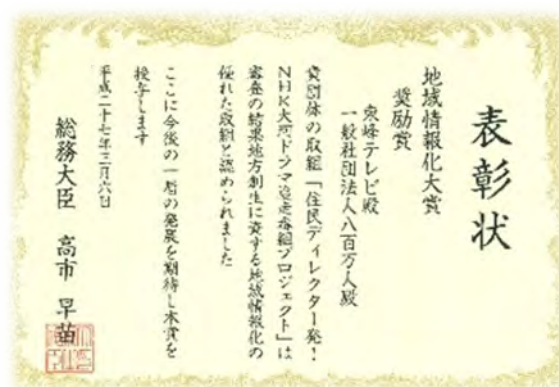 表彰状
地域情報化大賞
奨励賞
東峰テレビ殿
一般社団法人八百万人殿
貴団体の取組「住民ディレクター発！
NHK大河ドラマ追走番組プロジェクト」は
審査の結果地方創生に資する地域情報化の
優れた取組と認められました
ここに今後の一層の発展を期待し本賞を
授与します
平成二十七年三月六日
総務大臣 高市 早苗